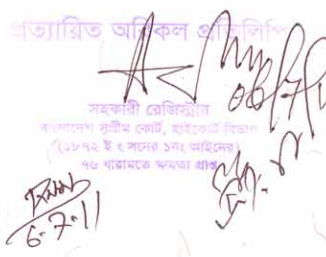 প্রত্যায়িত অবিকল প্রতিলিপি
06/7/11
সহকারী রেজিস্ট্রার
বাংলাদেশ সুপ্রীম কোর্ট, হাইকোর্ট বিভাগ
(১৮৭২ ই ং সনের ১নং আইনের
৭৬ ধারামতে ক্ষমতা প্রাপ্ত)
6-7-11